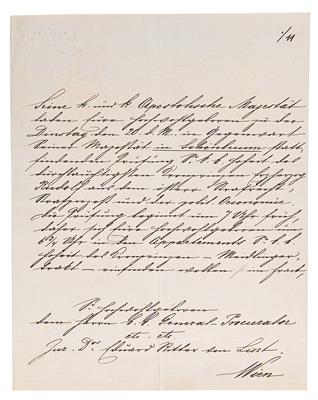 1/44
Seine k. und k. Apostolische Majestät
laden Eure Hochwohlgeboren zu der
Dienstag den 20. d. M. in Gegenwart
Seiner Majestät statt-
findenden Prüfung Sr. k. k. Hoheit des
durchlauchtigsten Kronprinzen Erzherzog
Rudolf aus dem Strafrecht,
Strafprozeß und der polit. Oeconomie.
Die Prüfung beginnt um 7 Uhr früh,
daher sich Eure Hochwohlgeboren um
6¾ Uhr in den Appartements Sr. k. k.
Hoheit des Kronprinzen – Meidlinger-
trakt – einfinden wollen (im Frack).
Sr. Hochwohlgeboren
dem Herrn k. k. General-Procurator
etc. etc.
Jur. Dr. Eduard Ritter von Liszt.
Wien